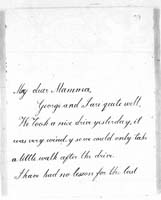 My dear Mamma,
George and I are quite well.
We took a nice drive yesterday, it
was very windy so we could only take
a little walk after the drive.
I have had no lesson for the last